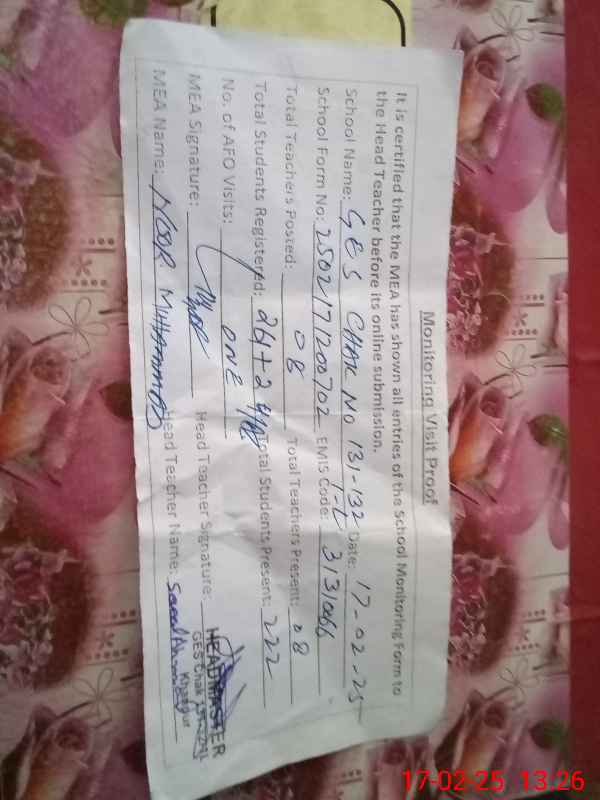 Monitoring Visit Proof
It is certified that the MEA has shown all entries of the School Monitoring Form to
the Head Teacher before its online submission.
School Name: GES CHAK NO 131-132 Date: 17-02-25
1-L
School Form No: 2502171200702 EMIS Code: 3131066
Total Teachers Posted: 08 Total Teachers Present: 08
Total Students Registered: Total Students Present: 222
No. of AFO Visits: ONE
MEA Signature: Head Teacher Signature:
MEA Name: NOOR MUHAMMAD Head Teacher Name:
HEADMASTER
GES Chak
Khanpur
17-02-25 13:26